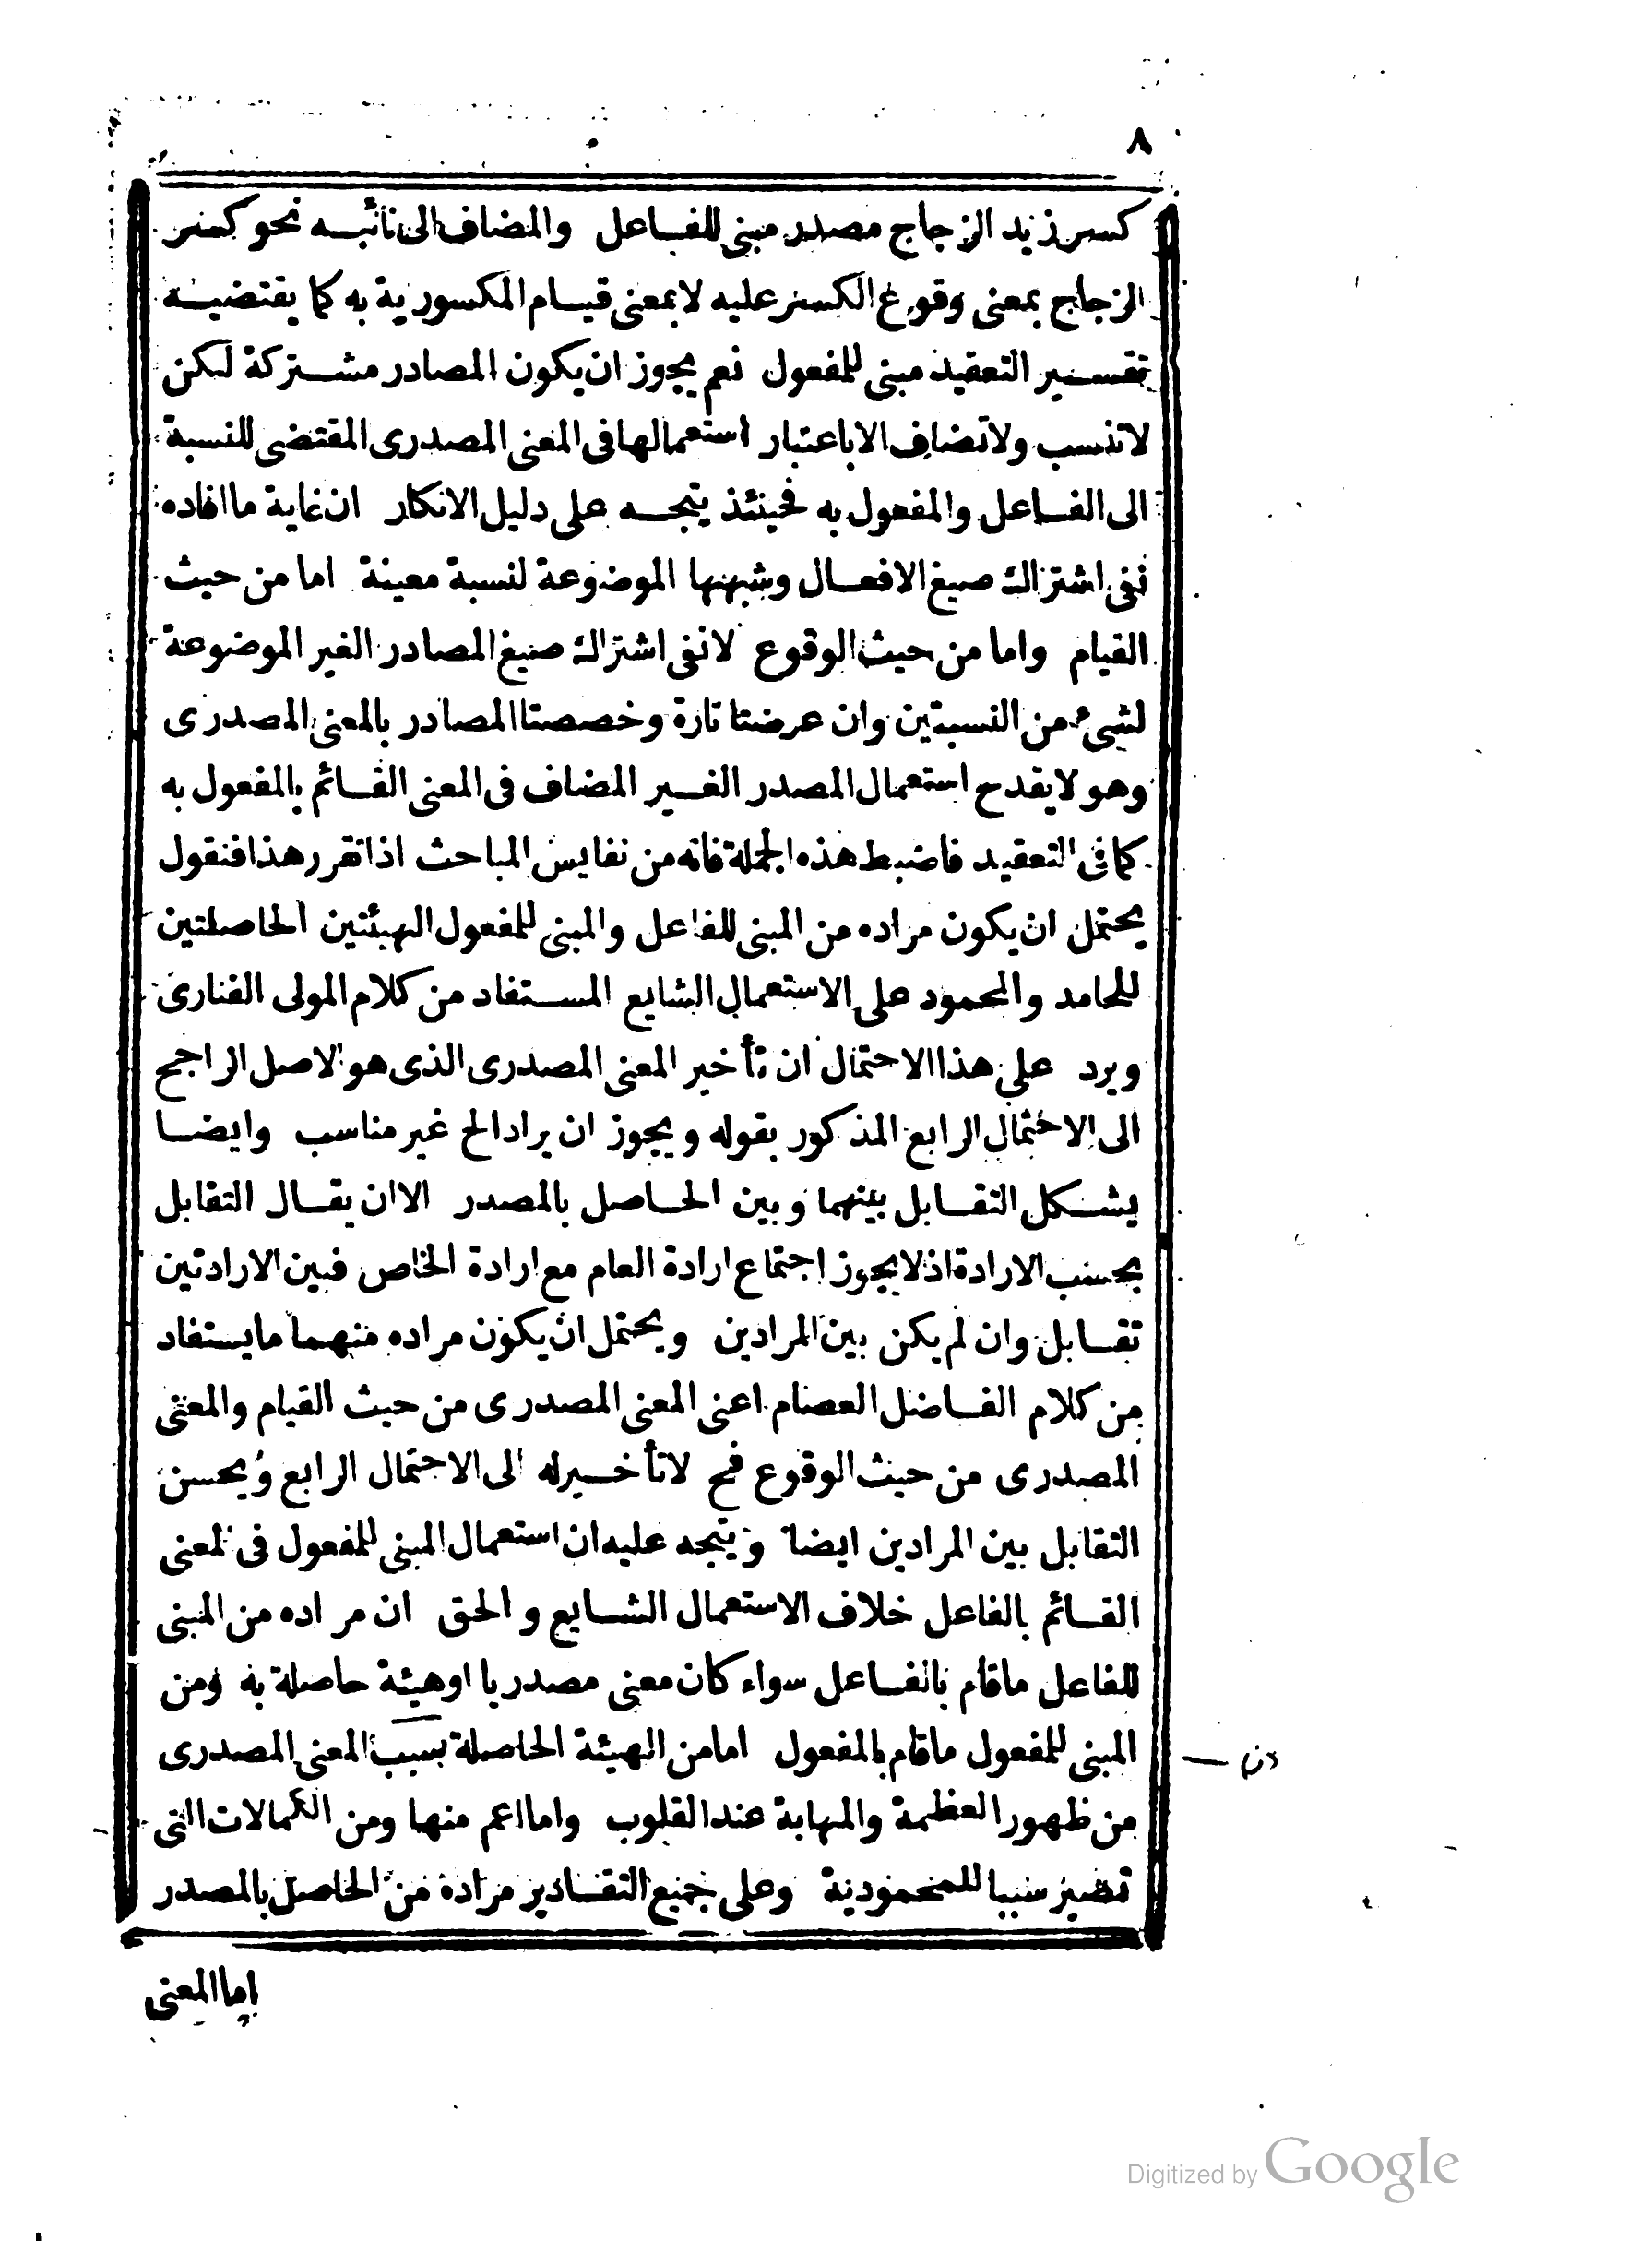 ٨
كسر زيد الزجاج مصدر مبنى للفاعل والمضاف الى نائبه نحو كسر
الزجاج بمعنى وقوع الكسر عليه لا بمعنى قيام المكسورية به كما يقتضيه
تفسير التعقيد مبنى للمفعول نعم يجوز ان يكون المصادر مشتركة لكن
لا تنسب ولا تضاف الا باعتبار استعمالها فى المعنى المصدرى المقتضى للنسبة
الى الفاعل والمفعول به فحينئذ يتجه على دليل الانكار ان غاية ما افاده
نفى اشتراك صيغ الافعال وشبهها الموضوعة لنسبة معينة اما من حيث
القيام واما من حيث الوقوع لا نفى اشتراك صيغ المصادر الغير الموضوعة
لشىء من النسبتين وان عرضتا تارة وخصصتا المصادر بالمعنى المصدرى
وهو لا يقدح استعمال المصدر الغير المضاف فى المعنى القائم بالمفعول به
كما فى التعقيد فاضبط هذه الجملة فانه من نفايس المباحث اذا تقرر هذا فنقول
يحتمل ان يكون مراده من المبنى للفاعل والمبنى للمفعول الهيئتين الحاصلتين
للحامد والمحمود على الاستعمال الشايع المستفاد من كلام المولى الفنارى
ويرد على هذا الاحتمال ان تأخير المعنى المصدرى الذى هو الاصل الراجح
الى الاحتمال الرابع المذكور بقوله ويجوز ان يراد الخ غير مناسب وايضا
يشكل التقابل بينهما وبين الحاصل بالمصدر الا ان يقال التقابل
بحسب الارادة اذ لا يجوز اجتماع ارادة العام مع ارادة الخاص فبين الارادتين
تقابل وان لم يكن بين المرادين ويحتمل ان يكون مراده منهما ما يستفاد
من كلام الفاضل العصام اعنى المعنى المصدرى من حيث القيام والمعنى
المصدرى من حيث الوقوع فح لا تأخير له الى الاحتمال الرابع ويحسن
التقابل بين المرادين ايضا ويتجه عليه ان استعمال المبنى للمفعول فى المعنى
القائم بالفاعل خلاف الاستعمال الشايع والحق ان مراده من المبنى
للفاعل ما قام بالفاعل سواء كان معنى مصدريا او هيئة حاصلة به ومن
المبنى للمفعول ما قام بالمفعول اما من الهيئة الحاصلة بسبب المعنى المصدرى
من ظهور العظمة والمهابة عند القلوب واما اعم منها ومن الكمالات التى
تصير سببا للمحمودية وعلى جميع التقادير مراده من الحاصل بالمصدر
اما المعنى
Digitized by Google